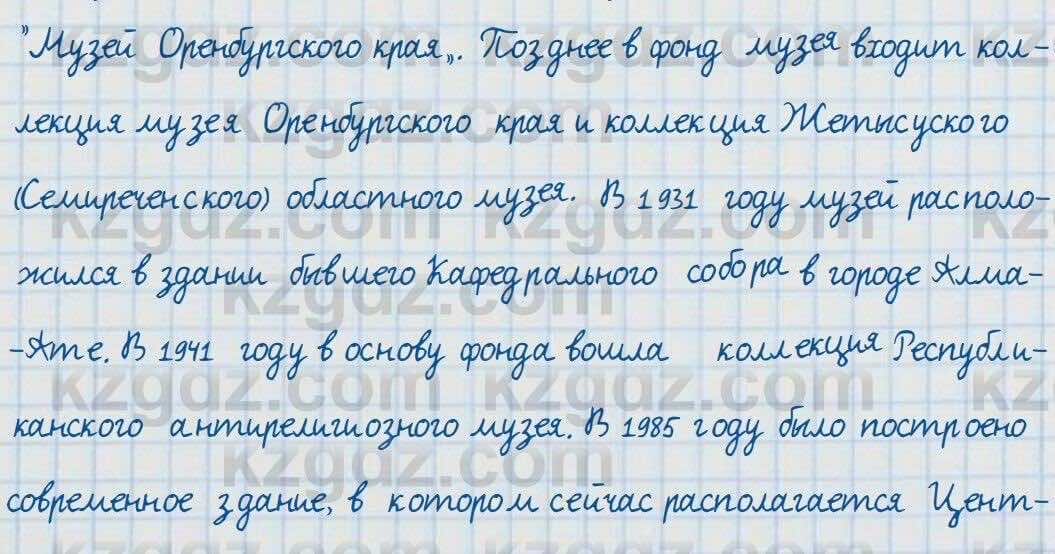 "Музей Оренбургского края„. Позднее в фонд музея входит кол-
лекция музея Оренбургского края и коллекция Жетысуского
(Семиреченского) областного музея. В 1931 году музей располо-
жился в здании бывшего Кафедрального собора в городе Алма-
-Ате. В 1941 году в основу фонда вошла коллекция Республи-
канского антирелигиозного музея. В 1985 году было построено
современное здание, в котором сейчас располагается Цент-